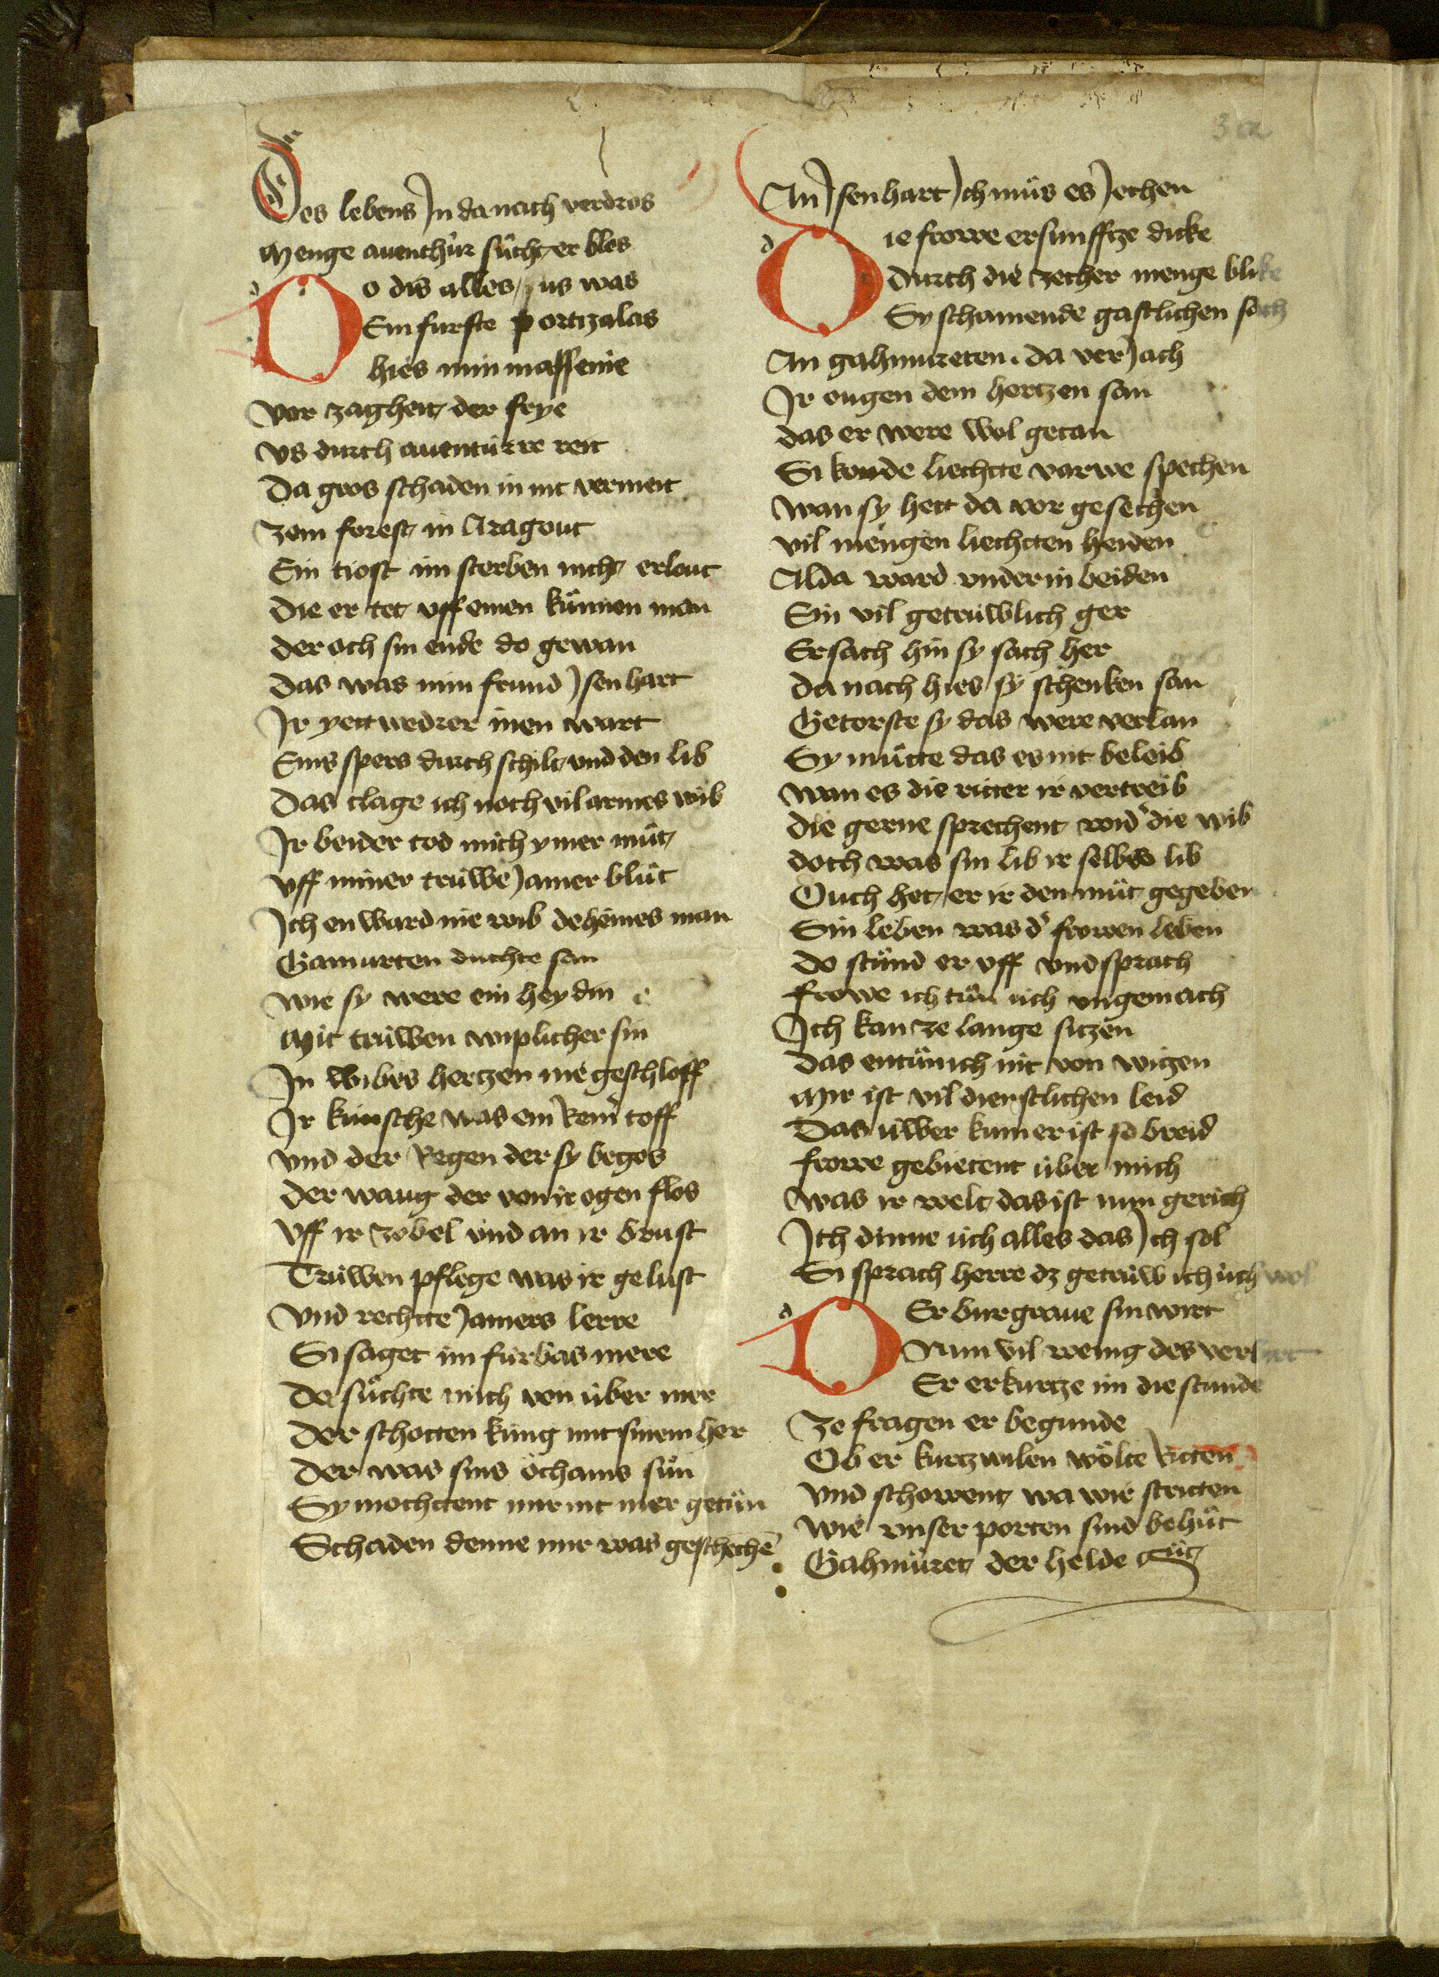 3a
Des lebens Jn da nach verdros
Menge auenthúr sůcht er blos
Do dis alles sus was
Ein furste portizalas
hies min massenie
Vor zagheit der frye
Vs durch auentúrre reit
Da gros schaden in nit vermeit
Zem forest in Aragout
Ein tiost im sterben nicht erlout
Die er tet vff einen kůnnen man
der och sin ende do gewan
Das was min frund Jsenhart
Jr yettwedrer inen wart
Eins spers durch schilt vnd den lib
Das clage ich noch vil armes wib
Jr beider tod mich ymer mů̂t
Vff miner trúwe Jamer blůt
Jch en ward nie wib deheines man
Gamurten duchte san
wie sy were ein heydin
Mit trúwen wiplicher sin
Jn wibes hertzen nie geschloff
Jr kunsche was ein Rein toff
Vnd der Regen der sy begos
der waug der von ir ogen flos
Vff ir zobel vnd an ir brust
Trúwen pflege was ir gelust
Vnd rechtte Jamers lerre
Si saget im fúrbas mere
Do sů̂chte mich von úber mer
Der schotten kúng mit sinem her
Der was sins óchams sůn
Sy mochttent mir nit mer getůn
Schaden denne mir was geschechē
An Jsenhart Jch můs es Jechen
Die frowe ersunfftze dicke
durch die zecher menge blike
Sy schamende gastlichen sach
An gahmureten da verJach
Jr ougen dem hertzen san
das er were wol getan
Si konde liechtte varwe spechen
wan sy hett da vor gesechen
vil mengen liechtten heiden
Alda ward vnder in beiden
Ein vil getrúwlich ger
Er sach hin sy sach her
da nach hies sy schenken san
Getorste sy das were verlan
Sy mů̂tte das es nit beleib
wan es die ritter ir vertreib
die gerne sprechent wid' die wib
doch was sin lib ir selbes lib
Ouch het er ir den můt gegeben
Sin leben was d' frowen leben
do stůnd er vff vnd sprach
frowe ich tůn úch vngemach
Jch kan ze lange sitzen
das entůn ich nit von witzen
Mir ist vil dienstlichen leid
Das úwer kumer ist so breid
frowe gebietent úber mich
was ir welt das ist min gerich
Jch dinne úch alles das Jch sol
Si sprach herre dz getrúw ich úch wol
Der burgraue sin wirt
Nun vil wenig des verbirt
Er erkurtze im die stunde
Ze fragen er begunde
Ob er kurtzwilen wólte Ritten
Vnd schowent wa wir stritten
wie vnser porten sind behůt
Gahmůret der helde gůt